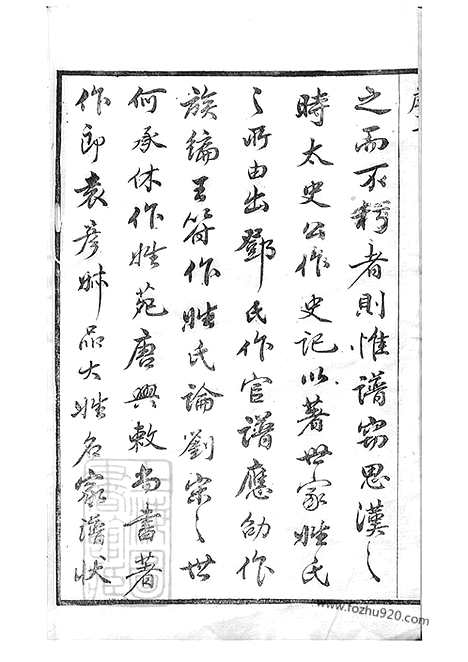 之而不朽者則惟譜竊思漢之
時太史公作史记以著世家姓氏
之所由出鄧氏作官譜應劭作
族编王符作姓氏論劉宋之世
何承休作姓苑唐興敕尚書著
作郎袁彦
品大姓名家譜状
www.fozhu920.com